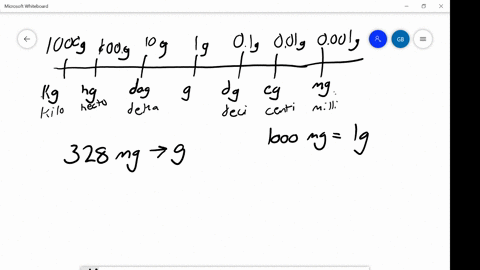 Microsoft Whiteboard
GB
1000g 100g 10g 1g 0.1g 0.01g 0.001g
Kg hg dag g dg cg mg
Kilo hecto deka deci centi milli
1000 mg = 1g
328 mg → g